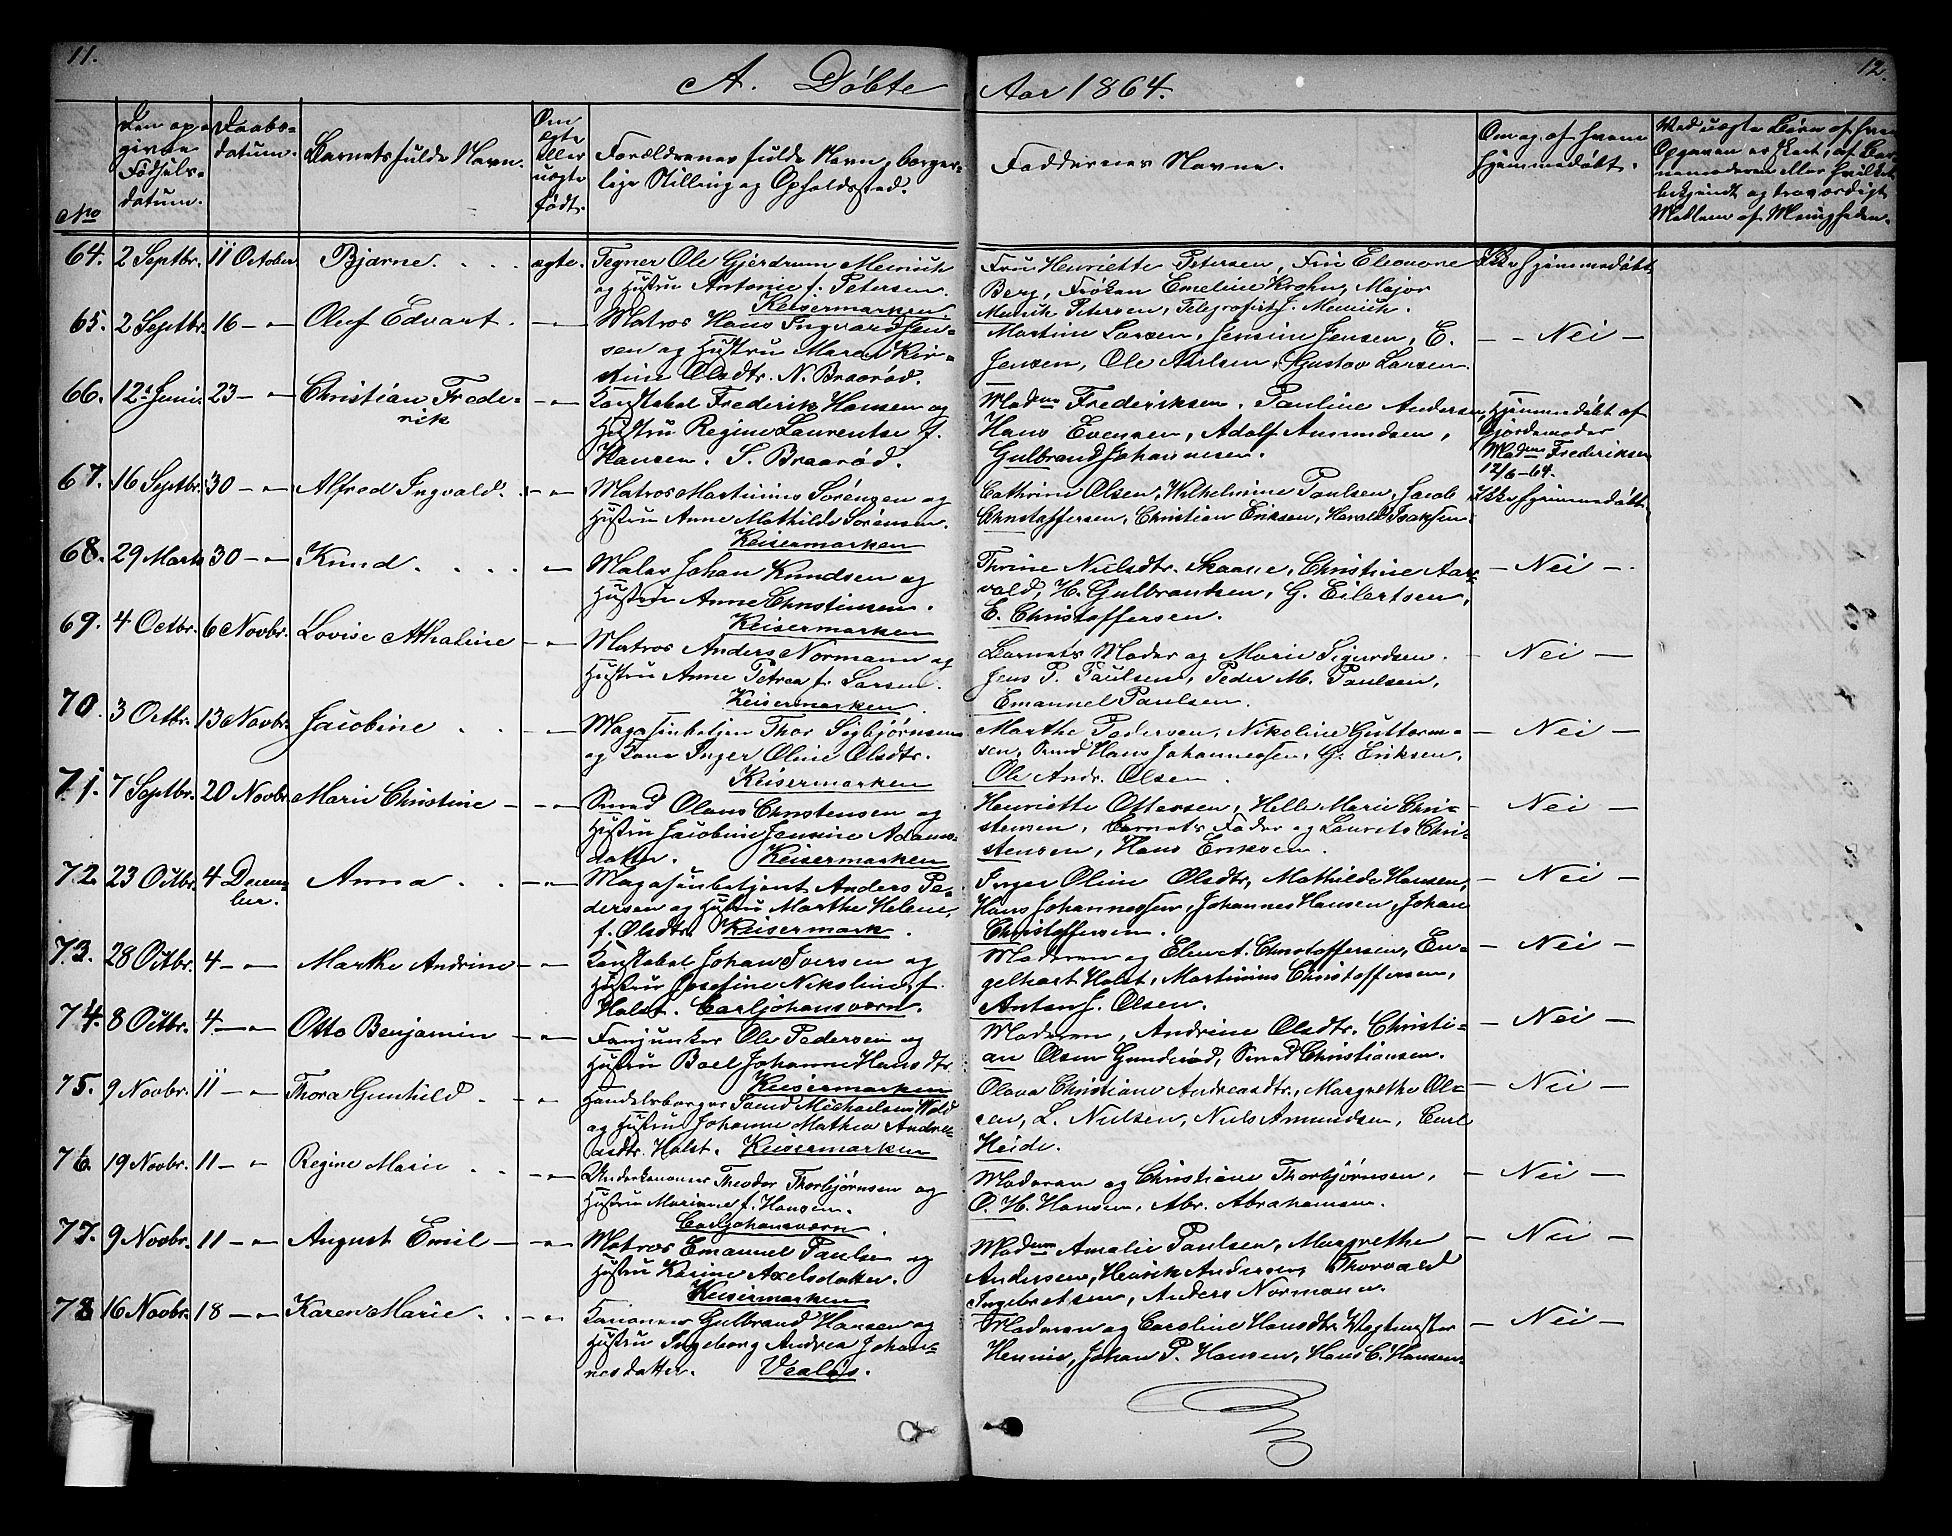 11.
12.
A. Döbte
Aar 1864.
No
Den op-
givne
Födsels-
datum.
Daabs-
datum.
Barnets fulde Navn.
Om
ægte
eller
uægte
födt.
Forældrenes fulde Navn, borger-
lige Stilling og Opholdssted.
Faddernes Navne.
Om og af hvem
hjemmedöbt.
Ved uægte Börn af hvem
Opgaven er skeet; af Bar-
nemoderen eller hvilket
bekjendt og troværdigt
Medlem af Menigheden.
64. 2 Septbr. 11 October Bjarne. ægte.
Tegner Ole Gjerdrum Meinich
og Hustru Antonie f. Petersen.
Keisermarken
Fru Henriette Petersen, Fru Eleonore
Berg, Fröken Emeline Krohn, Major
Meinich Petersen, Telegrafist J. Meinich.
Ikke hjemmedöbt
65. 2 Septbr. 16 - " Oluf Edvart. - " -
Matros Hans Ingvard Jen-
sen og Hustru Maren Kir-
stine Olsdtr. N. Braaröd.
Martine Larsen, Jensine Jensen, E.
Jensen, Ole Karlsen, Gustav Larsen.
- - Nei -
66. 12te Juni. 23 - " Christian Frede-
rik - " -
Konstabel Frederik Hansen og
Hustru Regine Laurentse f.
Hansen. S. Braaröd.
Madme Frederiksen, Pauline Andersen,
Hans Evensen, Adolf Amundsen,
Gulbrand Johannesen.
Hjemmedöbt af
Gjordemoder
Madme Frederiksen
12/6-64.
67. 16 Septbr. 30 - " Alfred Ingvald. - " -
Matros Martinius Sörensen og
Hustru Anne Mathilde Sörensen.
Keisermarken
Cathrine Olsen, Wilhelmine Paulsen, Jacob
Christoffersen, Christian Eriksen, Harald Isaksen.
Ikke hjemmedöbt.
68. 29 Marts 30 - " Knud. " -
Maler Johan Knudsen og
Hustru Anne Christensen.
Keisermarken
Thrine Nielsdtr. Skaane, Christine Aar-
vold, H. Gulbransen, G. Eilertsen,
E. Christoffersen.
- Nei -.
69. 4 Octbr. 6 Novbr. Lovise Athaline - " -
Matros Anders Normann og
Hustru Anne Petrea f. Larsen.
Keisermarken.
Barnets Moder og Marie Sigurdsen.
Jens P. Paulsen, Peder M. Paulsen,
Emanuel Paulsen.
- Nei -
70. 3 Octbr. 13 Novbr. Jacobine - " -
Magasinbetjen Thor Sigbjörnsen
og Kone Inger Oline Olsdtr.
Keisermarken
Marthe Pedersen, Nikoline Guttorm-
sen, Smed Hans Johannessen, G. Eriksen,
Ole Andr. Olsen.
- Nei -
71. 7 Septbr. 20 Novbr. Marie Christine - - " -
Smed Olaus Christensen og
Hustru Jacobine Jensine Adams-
datter. Keisermarken
Henriette Ottersen, Helle Marie Chri-
stensen, Barnets Fader og Laurits Chri-
stensen, Hans Eriksen.
- Nei -
72. 23 Octbr. 4 Decem-
ber. Anna. - " -
Magasinbetjent Anders Pe-
dersen og Hustru Marthe Helene,
f. Olsdtr. Keisermark.
Inger Oline Olsdtr, Mathilde Hansen,
Hans Johannessen, Johannes Hansen, Johan
Christoffersen.
- Nei -
73. 28 Octbr. 4 - " Marthe Andrine - " -
Konstabel Johan Iversen og
Hustru Josefine Nikoline, f.
Holst. Carljohansværn.
Moderen og Elen t. Christoffersen, En-
gelhart Holst, Martinius Christoffersen,
Anton J. Olsen.
- Nei -
74. 8 Octbr. 4 - " Otto Benjamin - " -
Fanjunker Ole Pedersen og
Hustru Boel Johanne Hansdtr.
Keisermarken
Moderen, Andrine Olsdtr. Christi-
an Olsen Gunderöd, Smed Christiansen.
- Nei -
75. 9 Novbr. 11 - " Thora Gunhild. - " -
Handelsborger Svend Michaelsen Wold
og Hustru Johanne Mathea Andre-
asdtr. Holst. Keisermarken
Olava Christiane Andreasdtr., Margrethe Ol-
sen, L. Nielsen, Niels Amundsen, Carl
Heide.
- Nei -
76. 19 Novbr. 11 - " Regine Marie - " -
Underkanoner Theodor Thorbjörnsen og
Hustru Mariane f. Hansen.
Carljohansværn
Moderen og Christiane Thorbjörnsen,
O. H. Hansen, Abr. Abrahamsen.
- Nei -
77. 9 Novbr. 11 - " August Emil - - " -
Matros Emanuel Paulsen og
Hustru Karine Axelsdatter.
Keisermarken
Madme Amalie Paulsen, Margrethe
Andersen, Henrik Andersen, Thorvald
Ingebretsen, Anders Normann.
- Nei -
78 16 Novbr. 18 - " Karen Marie. - " -
Kanoner Gulbrand Hansen og
Hustru Ingeborg Andrea Johan-
nesdatter. Vealös.
Moderen og Caroline Hansdtr. Vagtmester
Hennie, Johan P. Hansen, Hans C. Hansen.
- Nei -